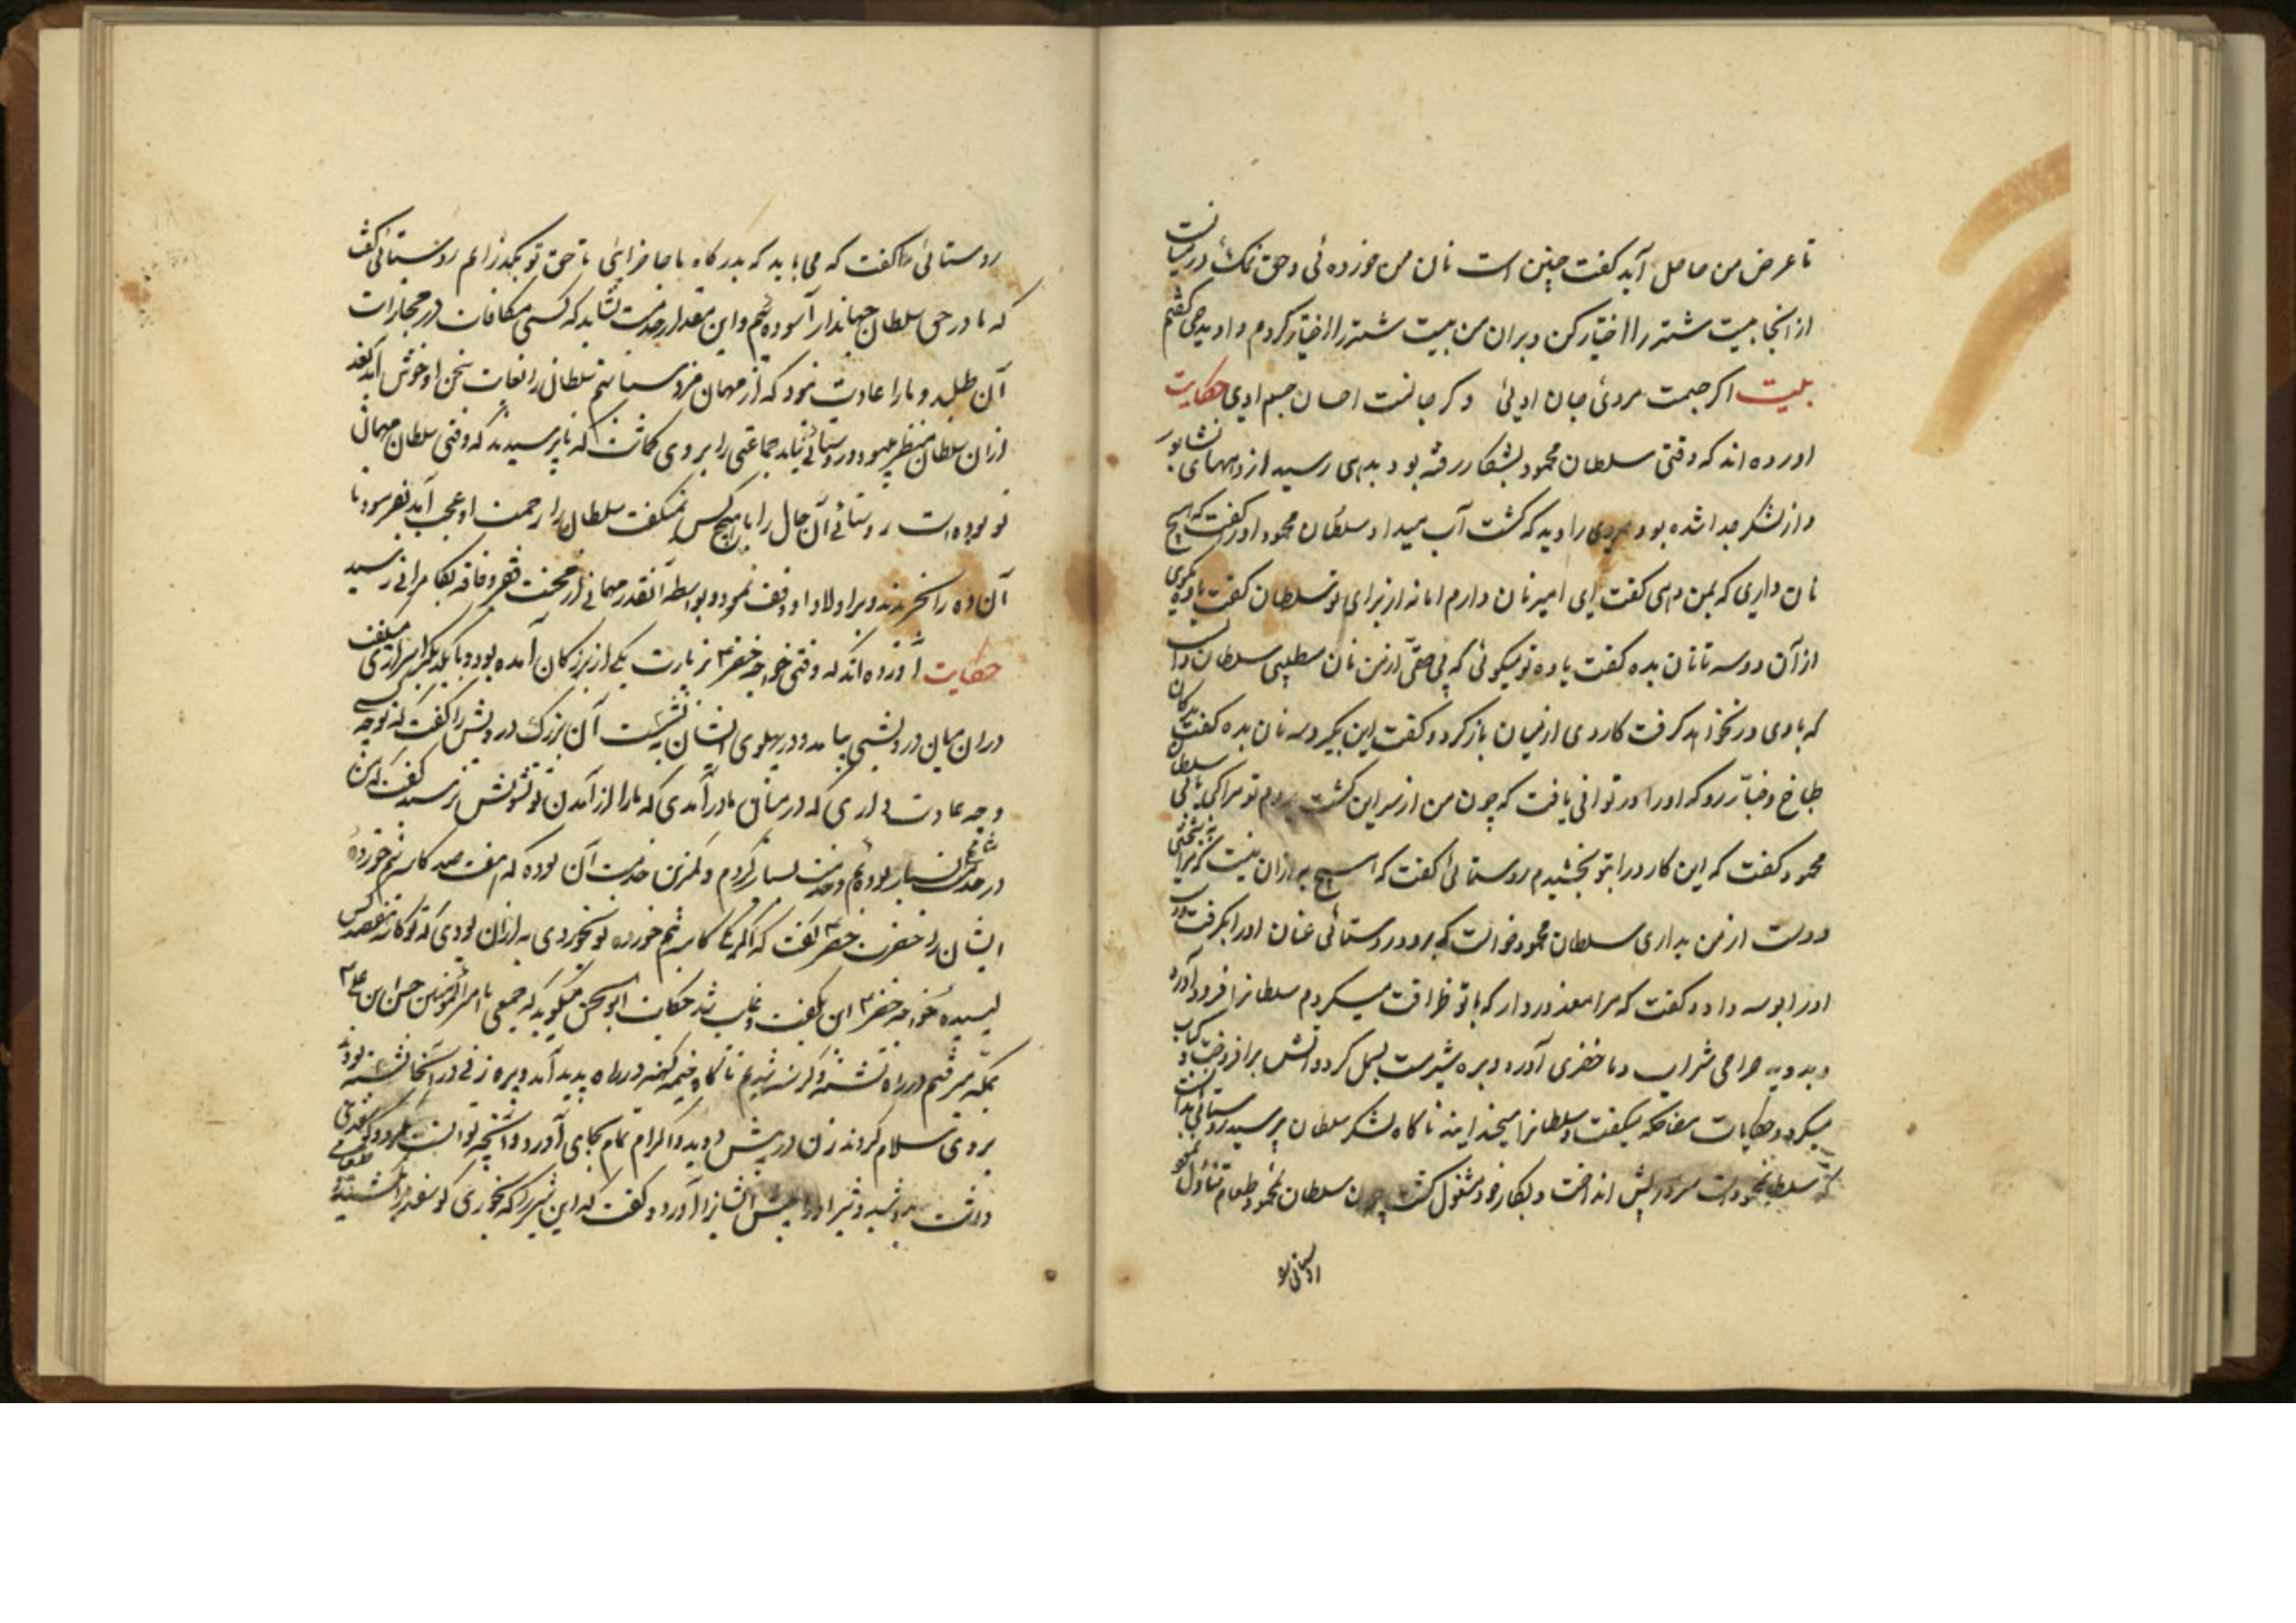 تا عرض من حاصل آید کفت چنین است نان من خورده ئی و حق نمک درمیانست
از انجا بیست شتر را اختیار کن و بران من بیست شتر را اختیار کردم و او بدهی کفتم
بیت اکر جیمت مردئ جان او یئ و کر جانست احسان جسم اوی حکایت
اورده اند که وقتی سلطان محمود بشکار رفته بود بدهی رسید از دههای نشابور
و از لشکر جدا شده بود مردی را دید که کشت آب میداد سلطان محمود اورا کفت که هیچ
نان داری که بمن دهی کفت ای امیر نان دارم اما نه از برای تو سلطان کفت یاوه مکوی
از آن دو سه تا نان بده کفت یاوه تو میکوئی که بی حقی از من نان میطلبی سلطان دانست
که با وی در نخواهد کرفت کاردی از میان باز کرد و کفت این بکیر و سه نان بده کفت بدکان
طباخ و خباز رو که اورا در توانی یافت که چون من از سر این کشت بروم تو مرا کی یابی سلطان
محمود کفت که این کارد را بتو بخشیدم روستائی کفت که هیچ به ازان نیست که مرا نبخشی
و دست از من بداری سلطان محمود خواست که برود روستائی عنان اورا بکرفت و دست
اورا بوسه داد و کفت که مرا معذور دار که با تو ظرافت میکردم سلطانرا فرود آورد
و بدوید صراحی شراب و ما حضری آورد و بره شیرمست بسمل کرد و آتش برافروخت و کباب
میکرد و حکایات مضاحکه میکفت و سلطانرا میخندانید ناکاه لشکر سلطان برسید روستائی بدانست
که سلطان محمود است سر در پیش انداخت و بکار خود مشغول کشت چون سلطان محمود طعام تناول نمود
روستائی را کفت که می باید که بدرکاه ما حاضر آئی تا حق تو بکذاریم روستائی کفت
که ما در حق سلطان جهاندار آسوده ایم و این مقدار خدمت نشاید که کسی مکافات و مجازات
آن طلبد و ما را عادت نبود که از مهمان مزد ستانیم سلطان را بغایت سخن او خوش آمد بعد
ازان سلطان منتظر میبود و روستائی نیامد جماعتی را بر وی کماشت که تا پرسیدند که وقتی سلطان مهمان
تو بوده است روستائی آن حال را با هیچ کس نمیکفت سلطان را از همت او عجب آمد بفرمود تا
آن ده را بخریدند و بر اولاد او وقف نمود و بواسطه آنقدر مهمانی از محنت فقر و فاقه بکامرانی رسید
حکایت آورده اند که وقتی خواجه خضر ۴ بزیارت یکی از بزرکان آمده بود و با یکدیکر اسراری میکفت
دران میان درویشی بیامد و در پهلوی ایشان بنشست آن بزرک درویش را کفت که تو چه کسی
و چه عادت داری که در میان ما در آمدی که ما را از آمدن تو تشویش نرسید کفت که من
در خدمت مشایخ بسیار بوده ام و خدمت بسیار کردم و کمترین خدمت آن بوده که هفت صد کاسه نیم خورده
ایشان را حضرت خضر ۴ کفت که اکر یک کاسه نیم خورده تو نخوردی به ازان بودی که تو کاسه هفتصد کس
لیسیده خواجه خضر ۴ این بکفت و غایب شد حکایت ابوالحسن میکوید که جمعی با امیر المؤمنین حسن ابن علی ۴
بمکه میرفتیم در راه تشنه و کرسنه شدیم تا ناکاه خیمه کهنه در راه پدید آمد و پیره زنی در آنجا نشسته بود
بر وی سلام کردند زن در پیش دوید و اکرام تمام بجای آورد و
دوشید و شیر اورا پیش ایشان آورد و کفت که این شیر را که بخوری